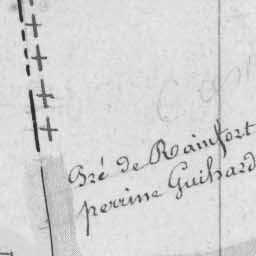 Pré de Rainfort
perrine Guihard